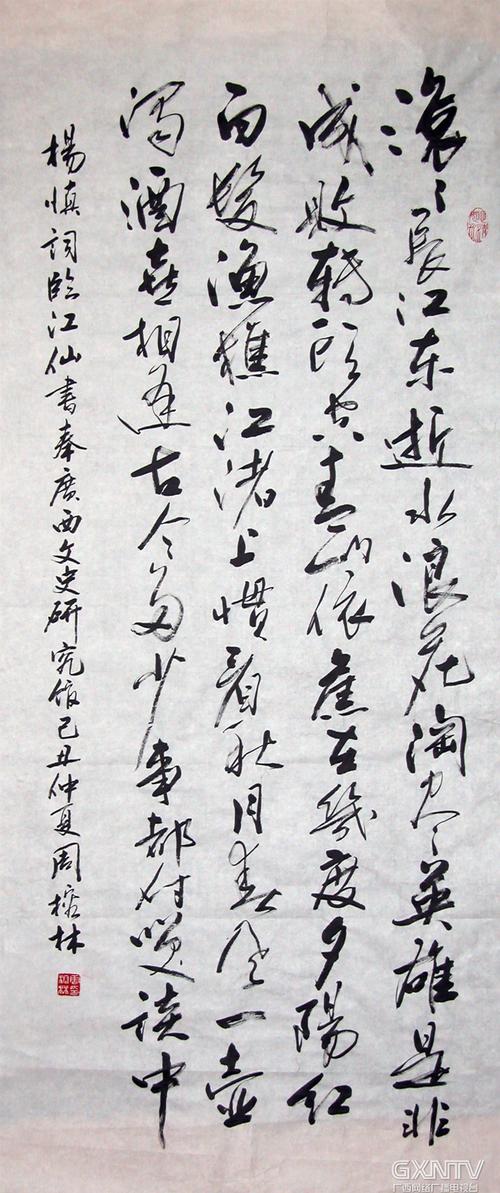 滚〻長江东逝水浪花淘尽英雄是非
成败转头空青山依旧在幾度夕陽红
白髮渔樵江渚上惯看秋月春风一壶
濁酒喜相逢古今多少事都付笑谈中
楊慎词临江仙書奉廣西文史研究馆己丑仲夏周榕林
GXNTV
广西网络广播电视台